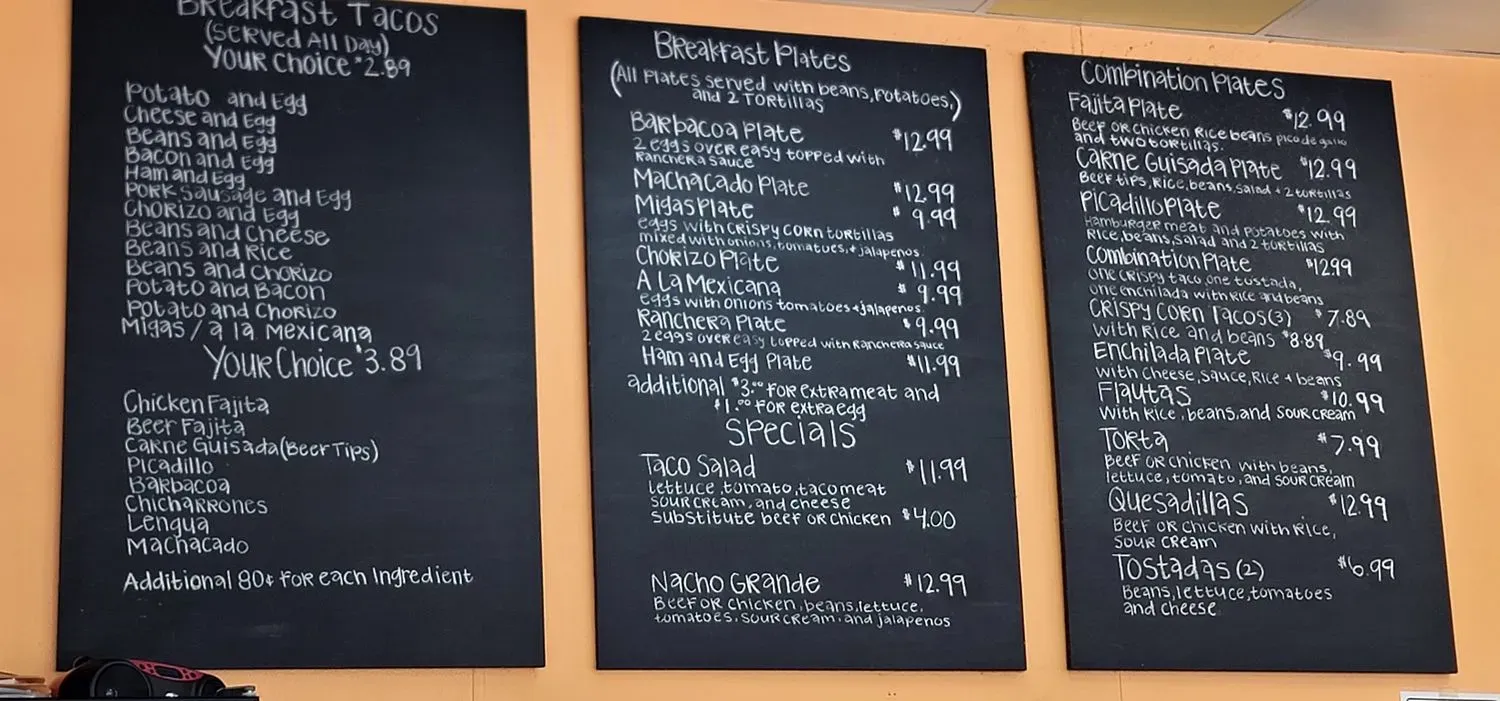 Breakfast Tacos
(Served All Day)
Your Choice $2.89
Potato and Egg
Cheese and Egg
Beans and Egg
Bacon and Egg
Ham and Egg
Pork Sausage and Egg
Chorizo and Egg
Beans and Cheese
Beans and Rice
Beans and Chorizo
Potato and Bacon
Potato and Chorizo
Migas / a la Mexicana
Your Choice $3.89
Chicken Fajita
Beef Fajita
Carne Guisada (Beef Tips)
Picadillo
Barbacoa
Chicharrones
Lengua
Machacado
Additional 80¢ for each Ingredient
Breakfast Plates
(All Plates served with beans, potatoes,
and 2 Tortillas)
Barbacoa Plate $12.99
2 eggs over easy topped with
Ranchera sauce
Machacado Plate $12.99
Migas Plate $9.99
eggs with crispy corn tortillas
mixed with onions, tomatoes, + jalapenos
Chorizo Plate $11.99
A La Mexicana $9.99
eggs with onions tomatoes + jalapenos
Ranchera Plate $9.99
2 eggs over easy topped with Ranchera sauce
Ham and Egg Plate $11.99
additional $3.00 for extra meat and
$1.00 for extra egg
Specials
Taco Salad $11.99
lettuce, tomato, taco meat
sour cream, and cheese
substitute beef or chicken $4.00
Nacho Grande $12.99
Beef or chicken, beans, lettuce,
tomatoes, sour cream, and jalapenos
Combination Plates
Fajita Plate $12.99
Beef or chicken Rice beans pico de gallo
and two tortillas.
Carne Guisada Plate $12.99
Beef tips, Rice, beans, salad + 2 tortillas
Picadillo Plate $12.99
Hamburger meat and potatoes with
Rice, beans, salad and 2 tortillas
Combination Plate $12.99
one crispy taco, one tustada,
one enchilada with rice and beans
Crispy Corn Tacos (3) $7.89
with Rice and beans $8.89
Enchilada Plate $9.99
with cheese, sauce, Rice + beans
Flautas $10.99
with Rice, beans, and sour cream
Torta $7.99
Beef or chicken with beans,
lettuce, tomato, and sour cream
Quesadillas $12.99
Beef or chicken with Rice,
sour cream
Tostadas (2) $6.99
Beans, lettuce, tomatoes
and cheese